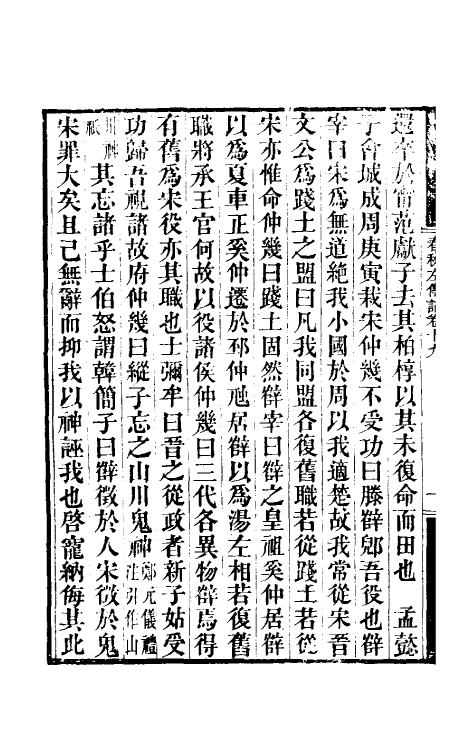 還卒於甯范獻子去其柏椁以其未復命而田也　孟懿
子會城成周庚寅栽宋仲幾不受功曰滕辥郳吾役也辥
宰曰宋爲無道絶我小國於周以我適楚故我常從宋晉
文公爲踐土之盟曰凡我同盟各復舊職若從踐土若從
宋亦惟命仲幾曰踐土固然辥宰曰辥之皇祖奚仲居辥
以爲夏車正奚仲遷於邳仲虺居辥以爲湯左相若復舊
職將承王官何故以役諸侯仲幾曰三代各異物辥焉得
有舊爲宋役亦其職也士彌牟曰晉之從政者新子姑受
功歸吾視諸故府仲幾曰縱子忘之山川鬼神鄭元儀禮注引作山
川神祇其忘諸乎士伯怒謂韓簡子曰辥徵於人宋徵於鬼
宋罪大矣且己無辭而抑我以神誣我也啓寵納侮其此
春秋左傳詁卷十九
一